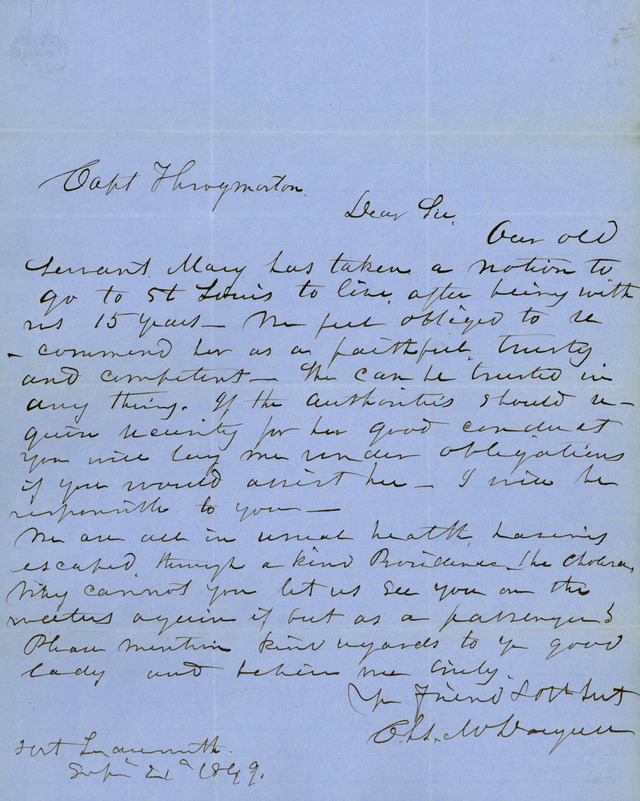 Capt Throgmorton.
Dear Sir.
Our old
servant, Mary has taken a notion to
go to St Louis to live, after being with
us 15 years— We feel obliged to re
-commend her as a faithful, trusty
and competent— She can be trusted in
any thing. If the authorities should re-
quire security for her good conduct
You will lay me under obligations
if you would assist her— I will be
responsible to you—
We are all in usual health, having
escaped, through a kind Providence, the Cholera,
Why cannot you let us see you on the
waters again if but as a passenger?
Please mention kind regards to yr good
lady and believe me truly.
Yr Friend & Obt Svt
Fort Leavenworth.
1849.